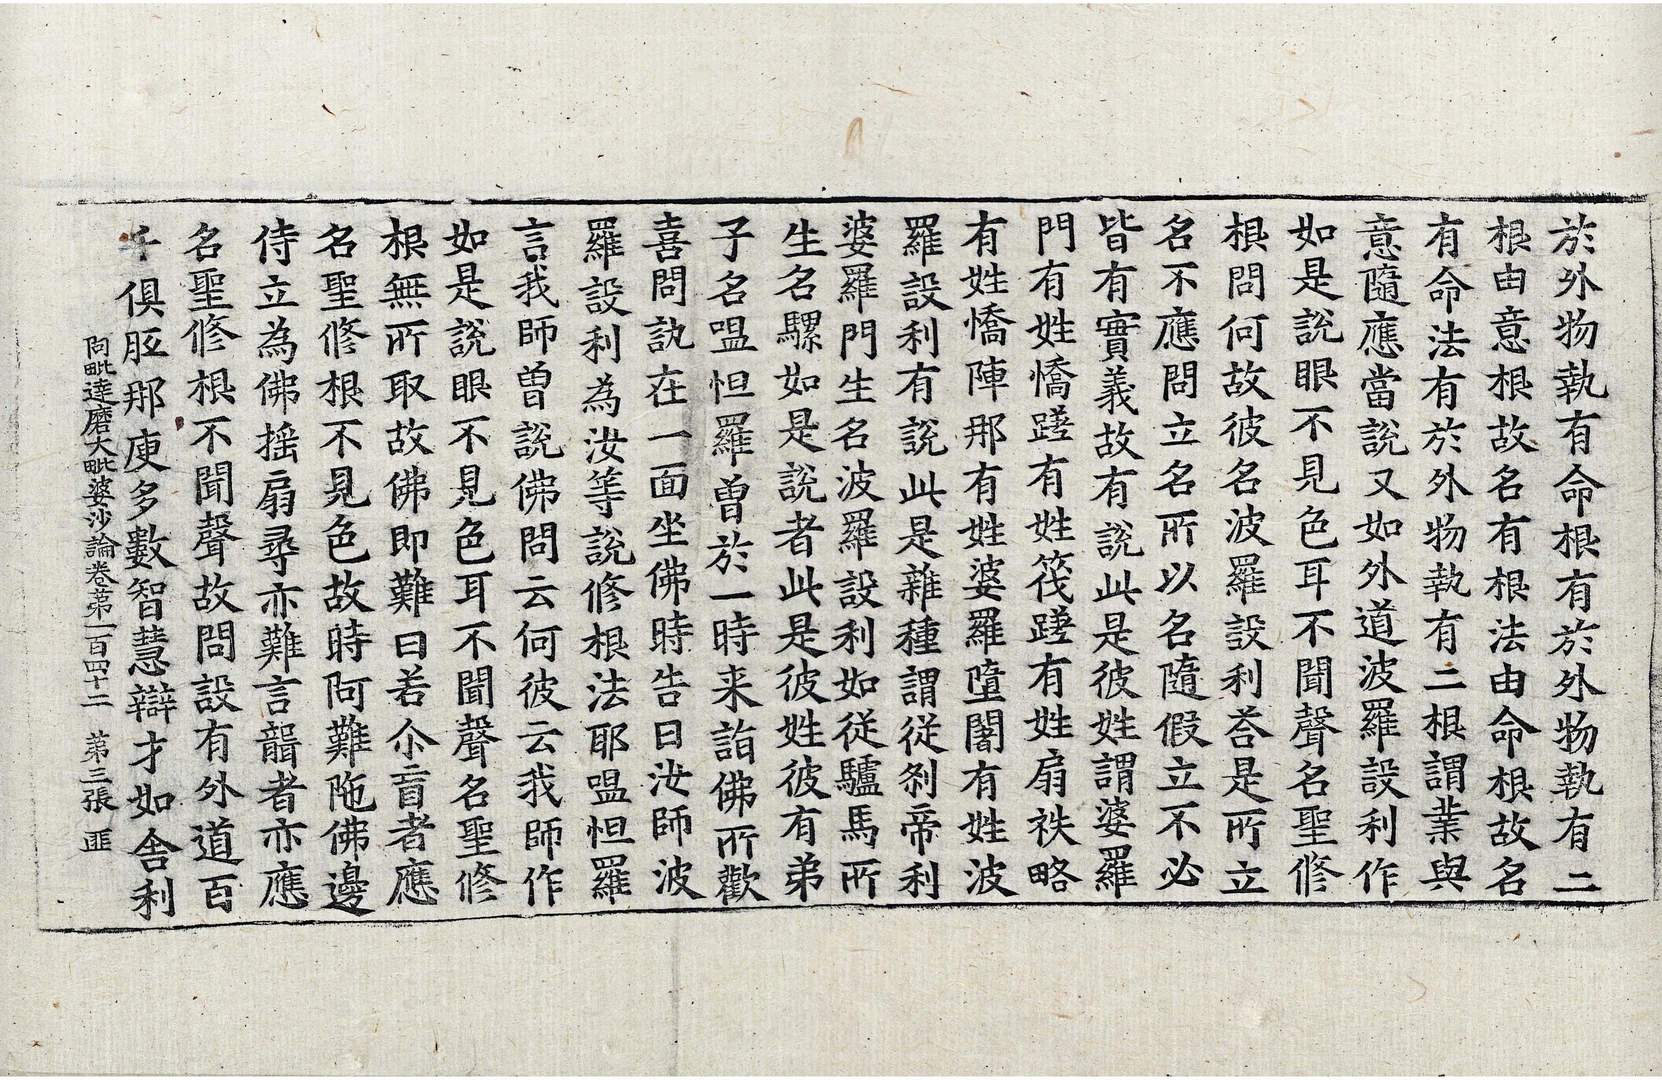 於外物執有命根有於外物執有二
根由意根故名有根法由命根故名
有命法有於外物執有二根謂業與
意隨應當說又如外道波羅設利作
如是說眼不見色耳不聞聲名聖修
根問何故彼名波羅設利荅是所立
名不應問立名所以名隨假立不必
皆有實義故有說此是彼姓謂婆羅
門有姓憍蹉有姓筏蹉有姓扇袟略
有姓憍陣那有姓婆羅墮闍有姓波
羅設利有說此是雜種謂從剎帝利
婆羅門生名波羅設利如從驢馬所
生名騾如是說者此是彼姓彼有弟
子名嗢怛羅曾於一時来詣佛所歡
喜問訊在一面坐佛時告曰汝師波
羅設利為汝等說修根法耶嗢怛羅
言我師曾說佛問云何彼云我師作
如是說眼不見色耳不聞聲名聖修
根無所取故佛即難曰若尒盲者應
名聖修根不見色故時阿難陁佛邊
侍立為佛搖扇尋亦難言聾者亦應
名聖修根不聞聲故問設有外道百
千俱胝那庾多數智慧辯才如舍利
阿毗達磨大毗婆沙論卷第一百四十二 第三張 匪